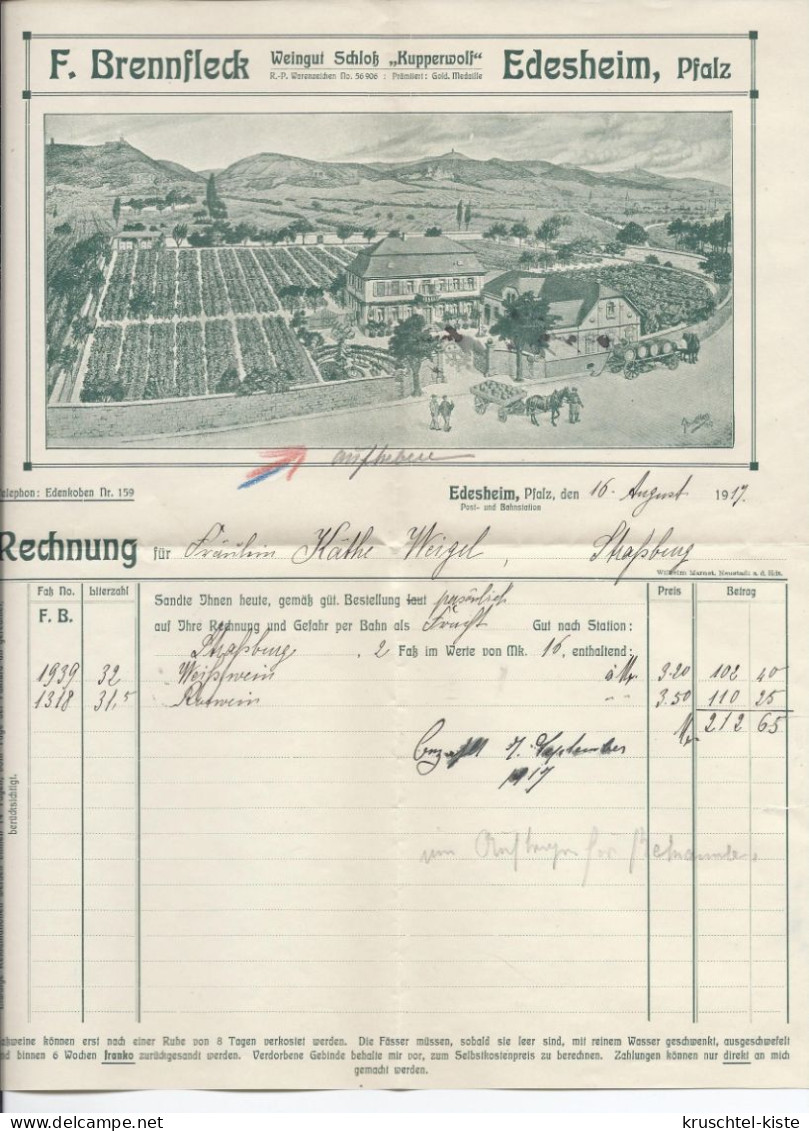 F. Brennfleck Weingut Schloß „Kupperwolf" Edesheim, Pfalz
R.-P. Warenzeichen No. 56 906 : Prämiiert: Gold. Medaille
aufheben
Telephon: Edenkoben Nr. 159
Edesheim, Pfalz, den 16. August 1917.
Post- und Bahnstation
Rechnung für Fräulein Käthe Weigel, Straßburg
Wilhelm Marnet, Neustadt a. d. Hdt.
Faß No. Literzahl Preis Betrag
F. B.
Sandte Ihnen heute, gemäß güt. Bestellung laut persönlich
auf Ihre Rechnung und Gefahr per Bahn als Fracht Gut nach Station:
Straßburg, 2 Faß im Werte von Mk. 16, enthaltend:
1939 32 Weißwein à M 3.20 102 40
1318 31,5 Rotwein " " 3.50 110 25
M 212 65
bezahlt 7. September
1917
berücksichtigt.
Faßweine können erst nach einer Ruhe von 8 Tagen verkostet werden. Die Fässer müssen, sobald sie leer sind, mit reinem Wasser geschwenkt, ausgeschwefelt
und binnen 6 Wochen franko zurückgesandt werden. Verdorbene Gebinde behalte mir vor, zum Selbstkostenpreis zu berechnen. Zahlungen können nur direkt an mich
gemacht werden.
kruschtel-kiste